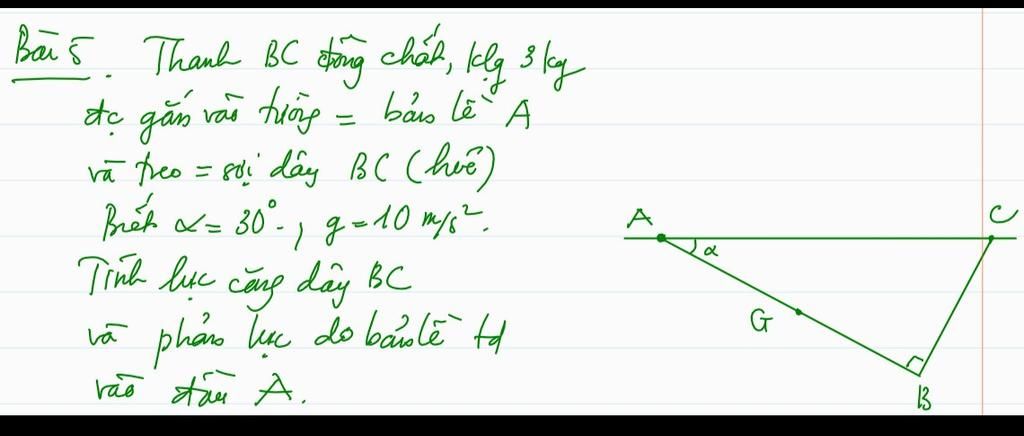 Bài 5. Thanh BC đồng chất, klg 3 kg
đc gắn vào tường = bản lề A
và treo = sợi dây BC (hvẽ)
Biết α = 30°, g = 10 m/s².
Tính lực căng dây BC
và phản lực do bản lề td
vào đầu A.
A
C
α
G
B